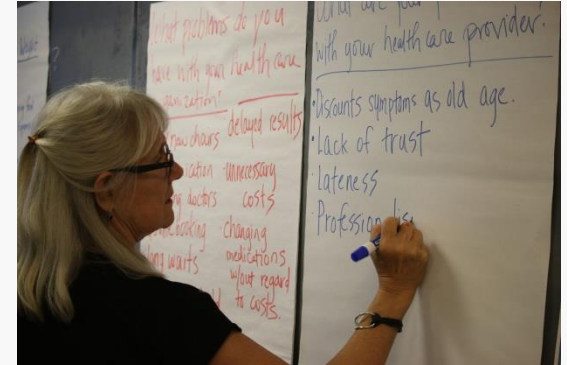 What problems do you
have with your health care
organization?
delayed results
unnecessary
costs
doctors
booking
changing
long waits
medications
w/out regard
to costs.
What are your
with your health care provider?
· Discounts symptoms as old age.
· Lack of trust
· Lateness
· Profession